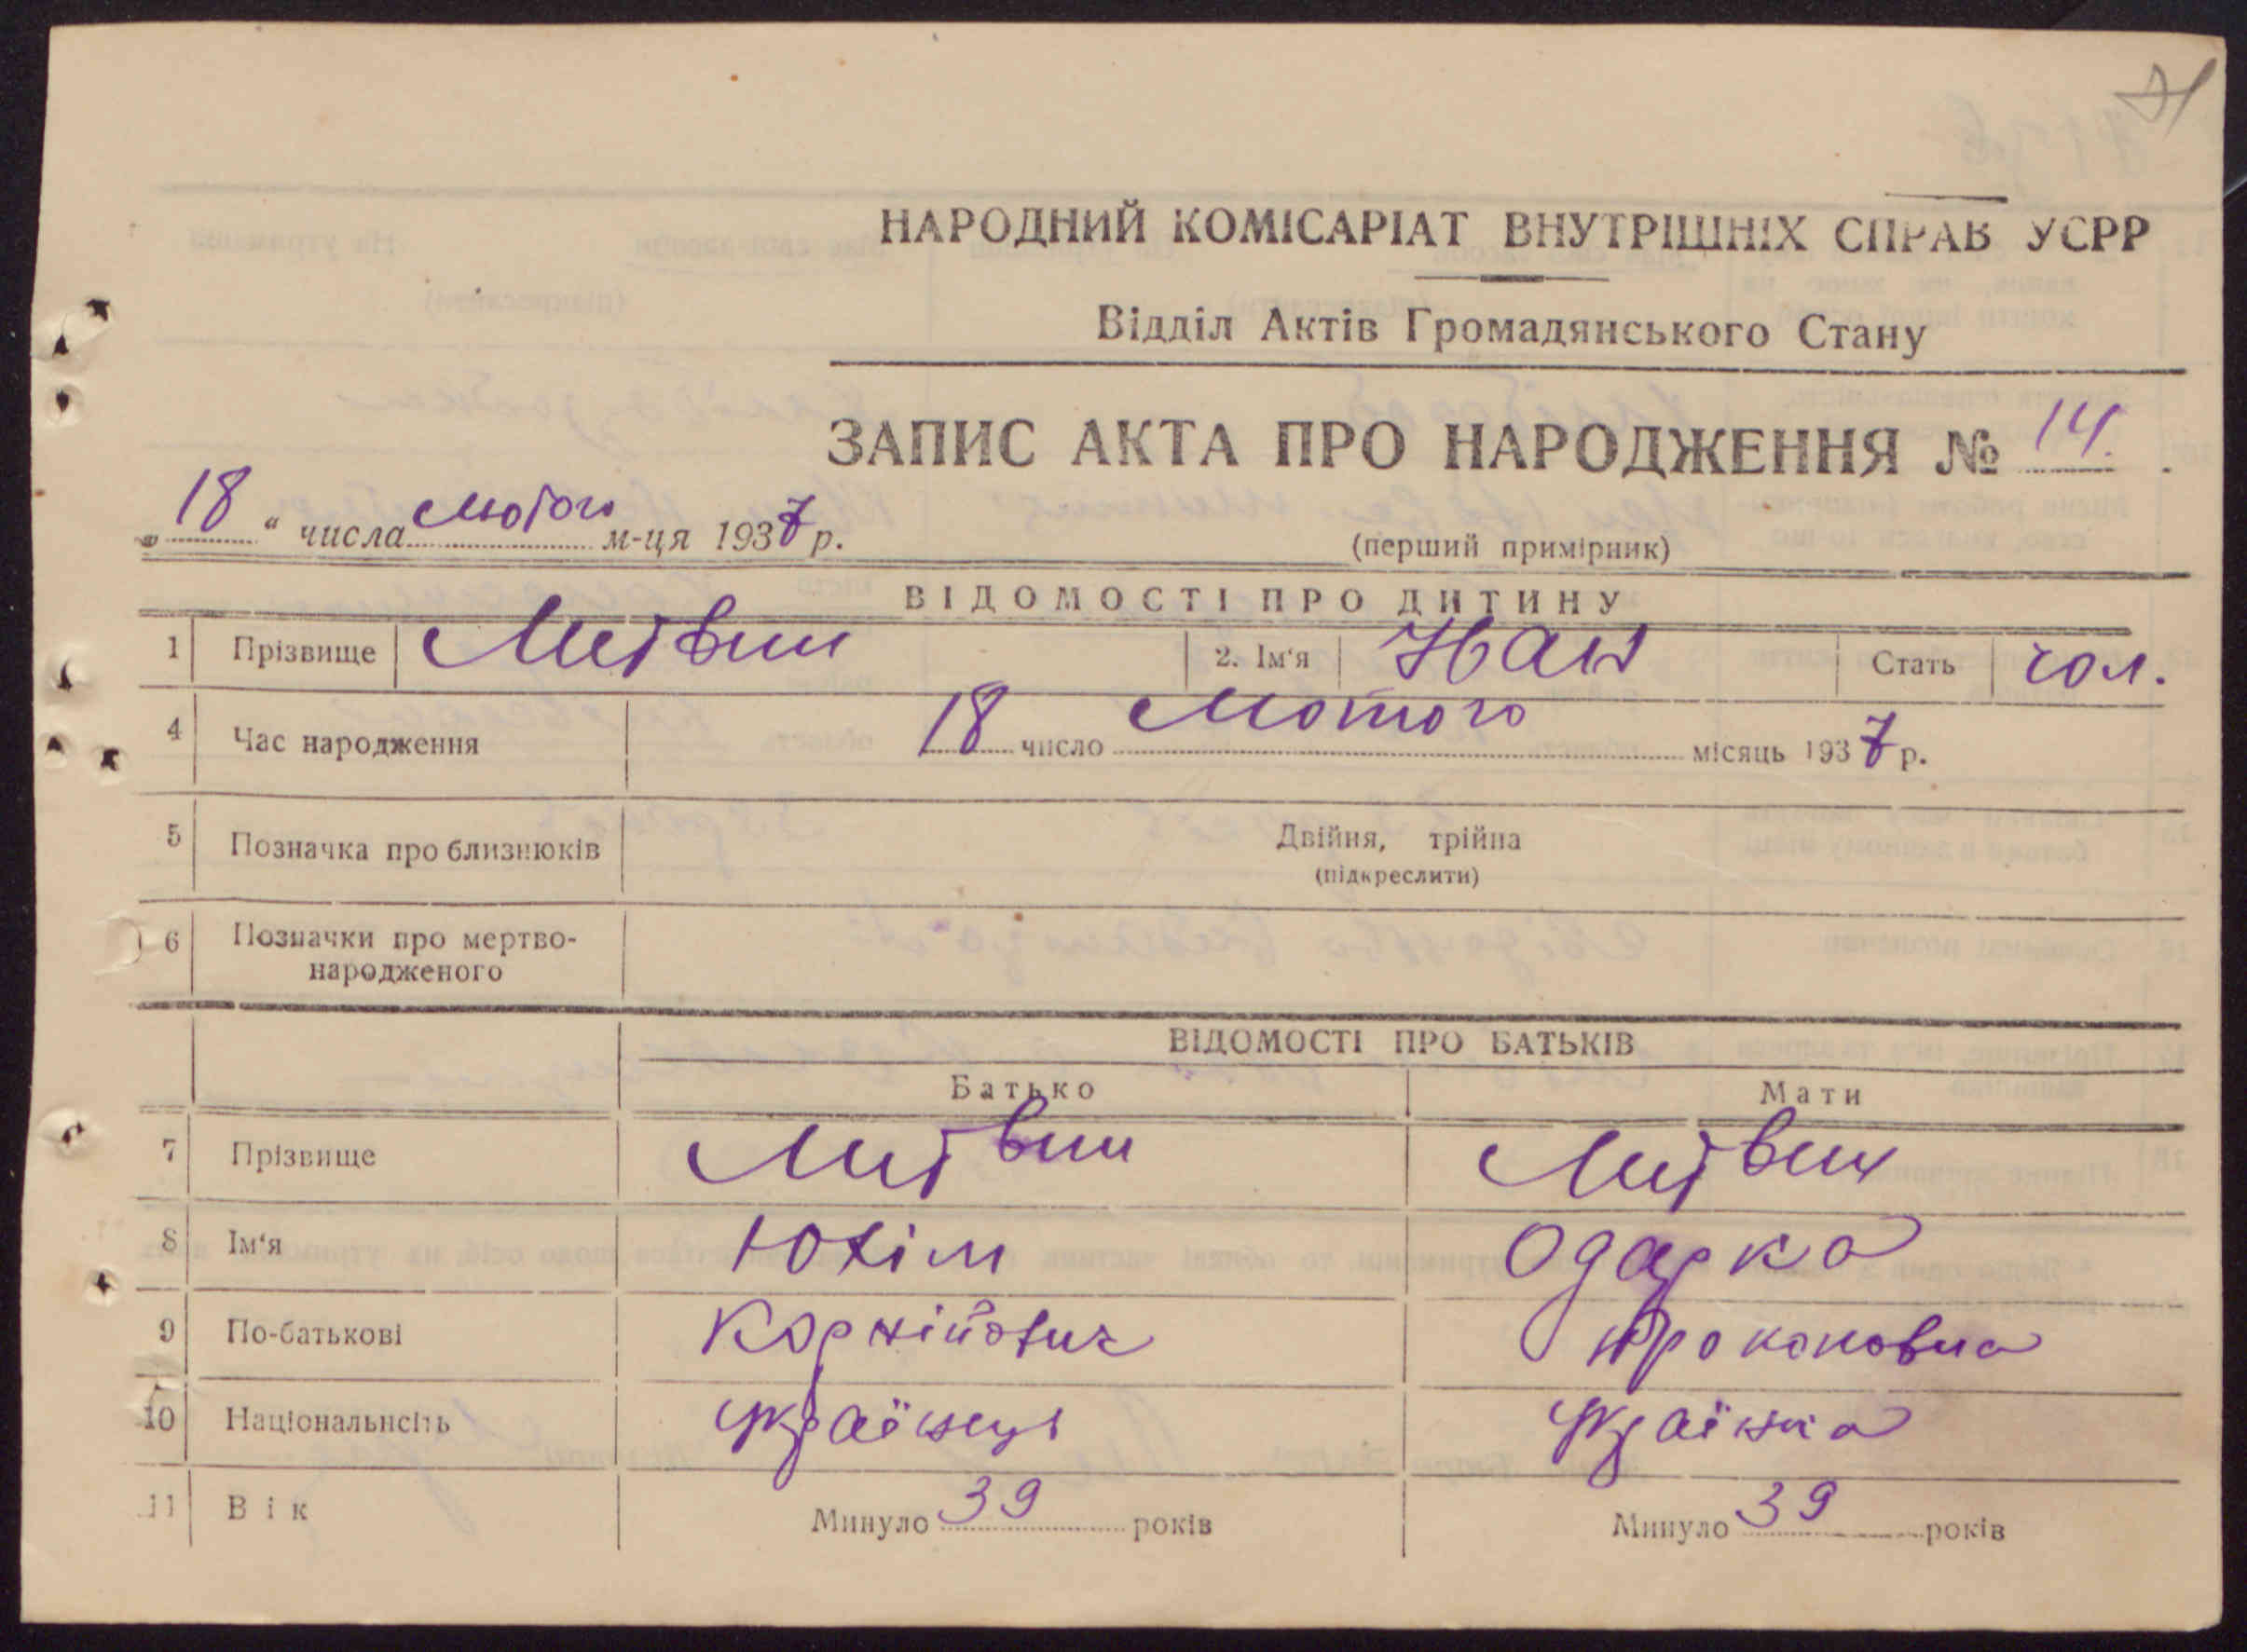 71
НАРОДНИЙ КОМІСАРІАТ ВНУТРІШНІХ СПРАВ УСРР
Відділ Актів Громадянського Стану
ЗАПИС АКТА ПРО НАРОДЖЕННЯ № 14.
„18“ числа лютого м-ця 1937 р.
(перший примірник)
ВІДОМОСТІ ПРО ДИТИНУ
1 Прізвище Литвин 2. Ім'я Іван Стать чол.
4 Час народження 18 число лютого місяць 1937 р.
5 Позначка про близнюків Двійня, трійна
(підкреслити)
6 Позначки про мертво-
народженого
ВІДОМОСТІ ПРО БАТЬКІВ
Батько Мати
7 Прізвище Литвин Литвин
8 Ім'я Юхім Одарка
9 По-батькові Корнійович Прокоповна
10 Національнсіть українець українка
11 Вік Минуло 39 років Минуло 39 років